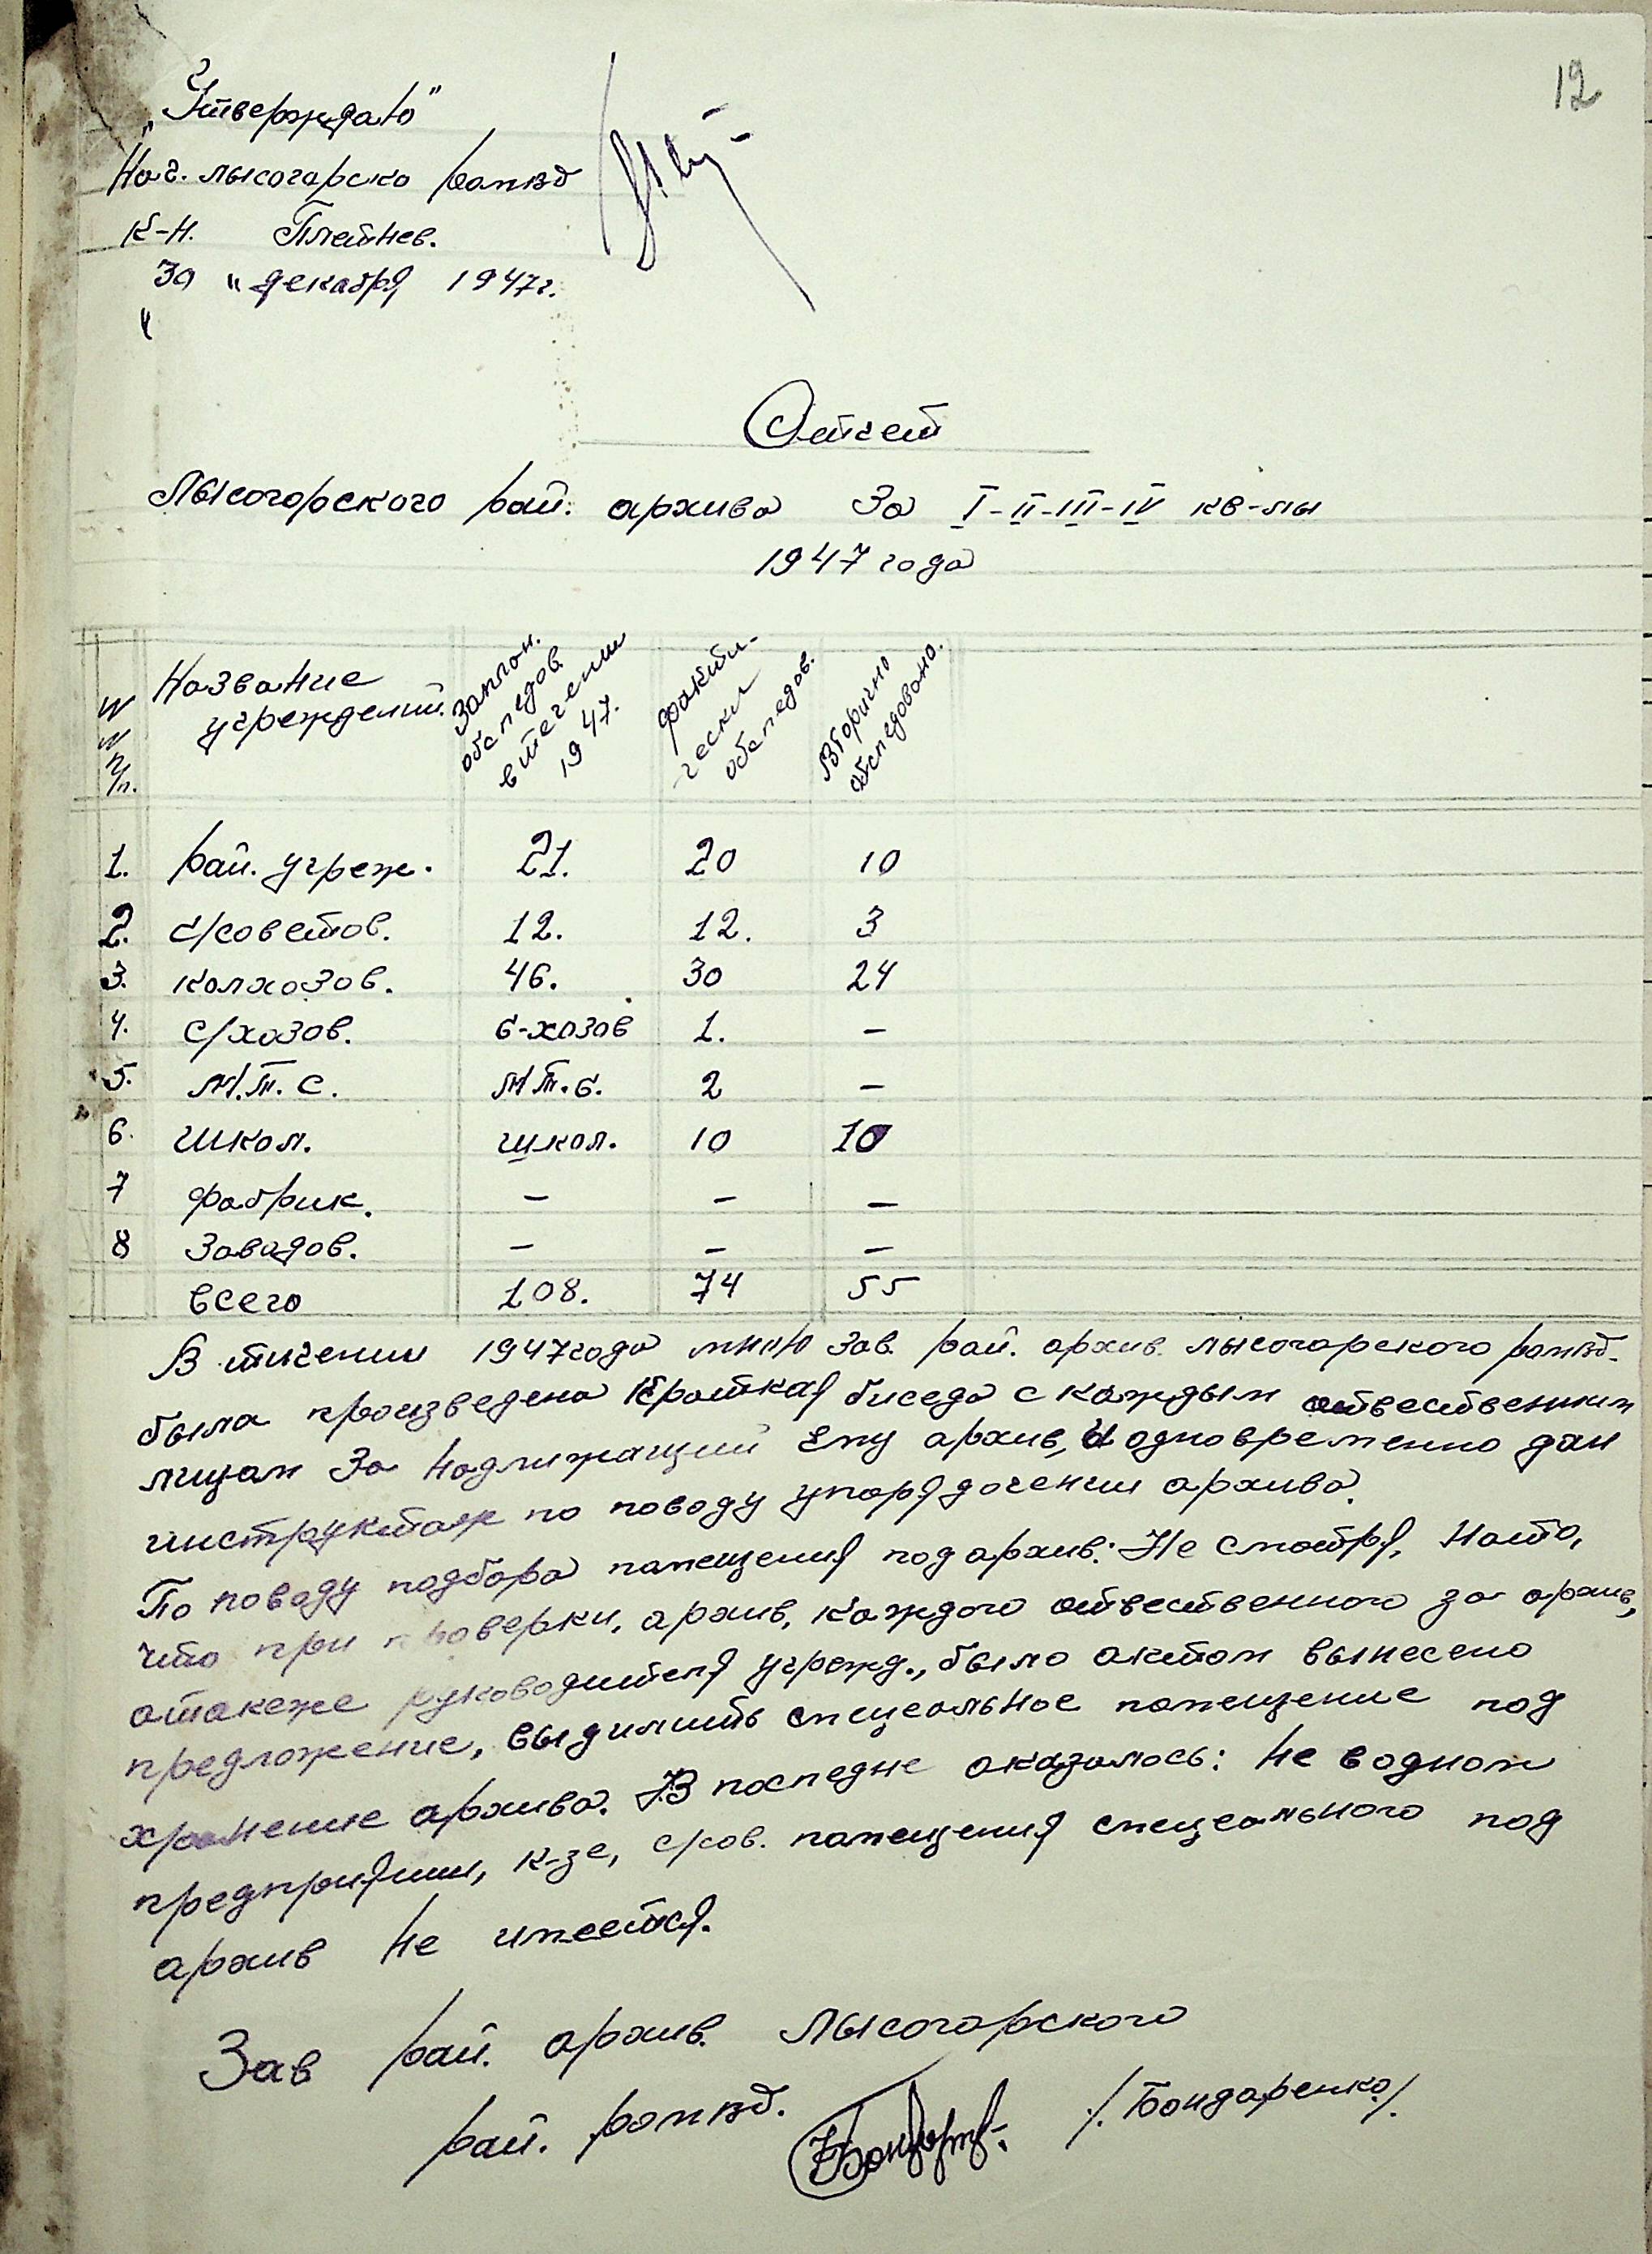 12
„Утверждаю"
Нач. лысогорско ромвд
к-н. Плетнев.
30 „декабря 1947г.
"
Отчет
Лысогорского рай. архива за I-II-III-IV кв-лы
1947 года
NN п/п. Название учреждений. Заплан. обследов. в течении 1947. Факти-чески обследов. Вторично обследовано.
1. рай. учреж. 21. 20 10
2. с/советов. 12. 12. 3
3. колхозов. 46. 30 24
4. с/хозов. с-хозов 1. –
5. М.Т.С. М.Т.С. 2 –
6. школ. школ. 10 10
7 фабрик. – – –
8 заводов. – – –
всего 108. 74 55
В тичении 1947года мною зав. рай. архив. лысогорского ромвд.
была произведена краткая биседа с каждым отвественним
лицам за надлижащий ему архив, и одновременно дан
инструктаж по поводу упорядочении архива.
По поводу подбора помещения под архив: Не смотря, нато,
что при проверки, архив, каждого отвественного за архив,
атакеже руководителя учрежд., было актом вынесено
предложение, выдилить спецеальное помещение под
хранение архива. В последне оказалось: не водном
предприятии, к-зе, с/сов. помещения спецеального под
архив не имеется.
Зав рай. архив. Лысогорского
рай. ромвд. /.Бондаренко/.